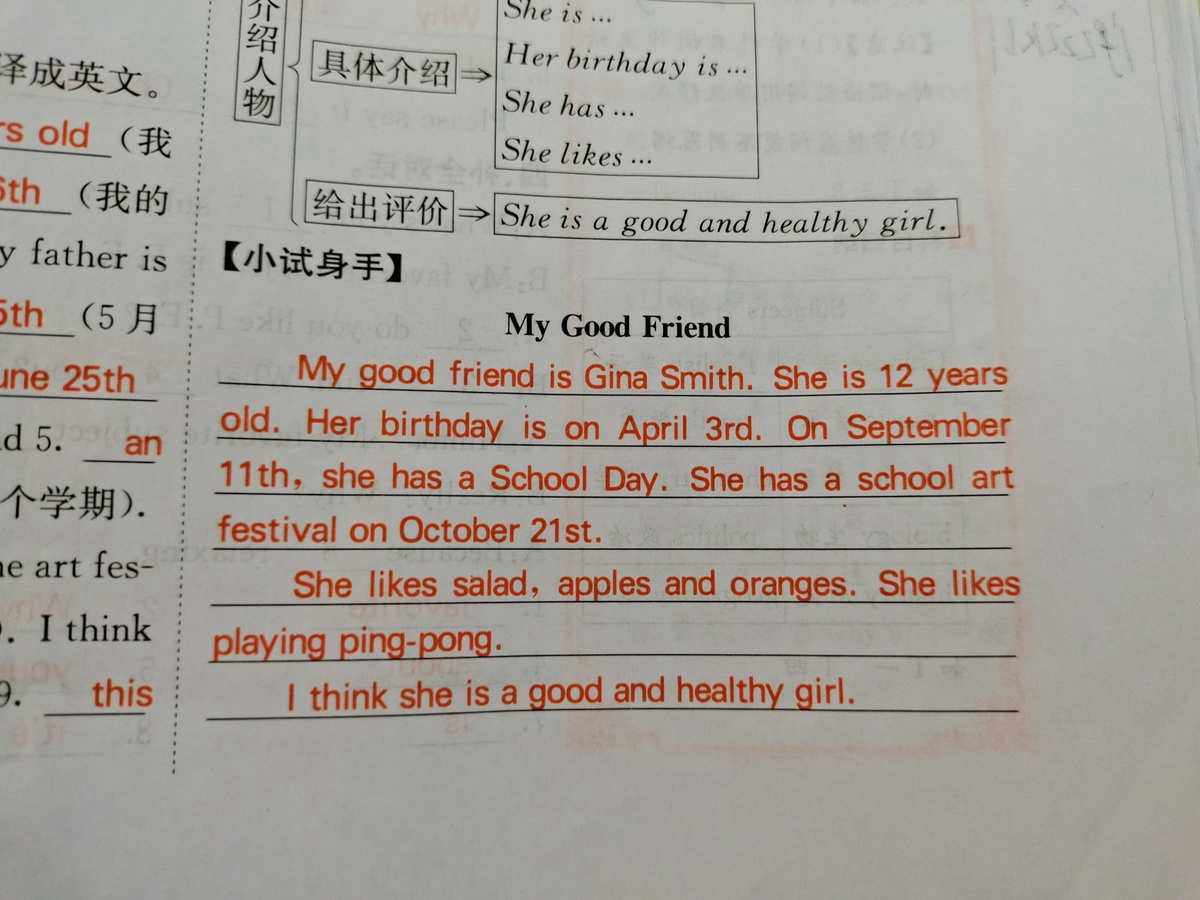 译成英文。
rs old (我
6th (我的
y father is
5th (5月
une 25th
d 5. an
个学期).
e art fes-
. I think
9. this
介绍人物
具体介绍⇒
She is …
Her birthday is …
She has …
She likes …
给出评价⇒ She is a good and healthy girl.
【小试身手】
My Good Friend
My good friend is Gina Smith. She is 12 years
old. Her birthday is on April 3rd. On September
11th, she has a School Day. She has a school art
festival on October 21st.
She likes salad, apples and oranges. She likes
playing ping-pong.
I think she is a good and healthy girl.